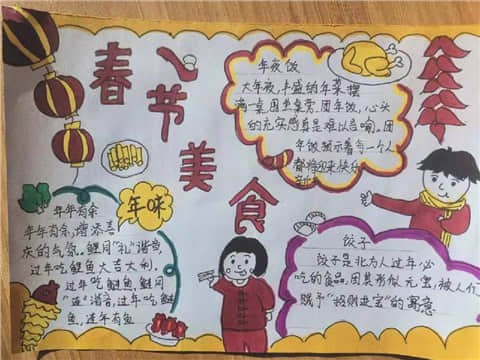 春节美食
年夜饭
大年夜,丰盛的年菜摆
满一桌,围坐桌旁,团年饭,心头
的充实感真是难以言喻。团
年饭预示着每一个人
都将迎来快乐
年味
年年有余
年年有余,增添喜
庆的气氛。鲤同"礼"谐音,
过年吃鲤鱼大吉大利。
过年吃鲢鱼,鲢同
"连"谐音,过年吃鲢
鱼,连年有鱼
饺子
饺子是北方人过年必
吃的食品,因其形似元宝,被人们
赋予"招财进宝"的寓意